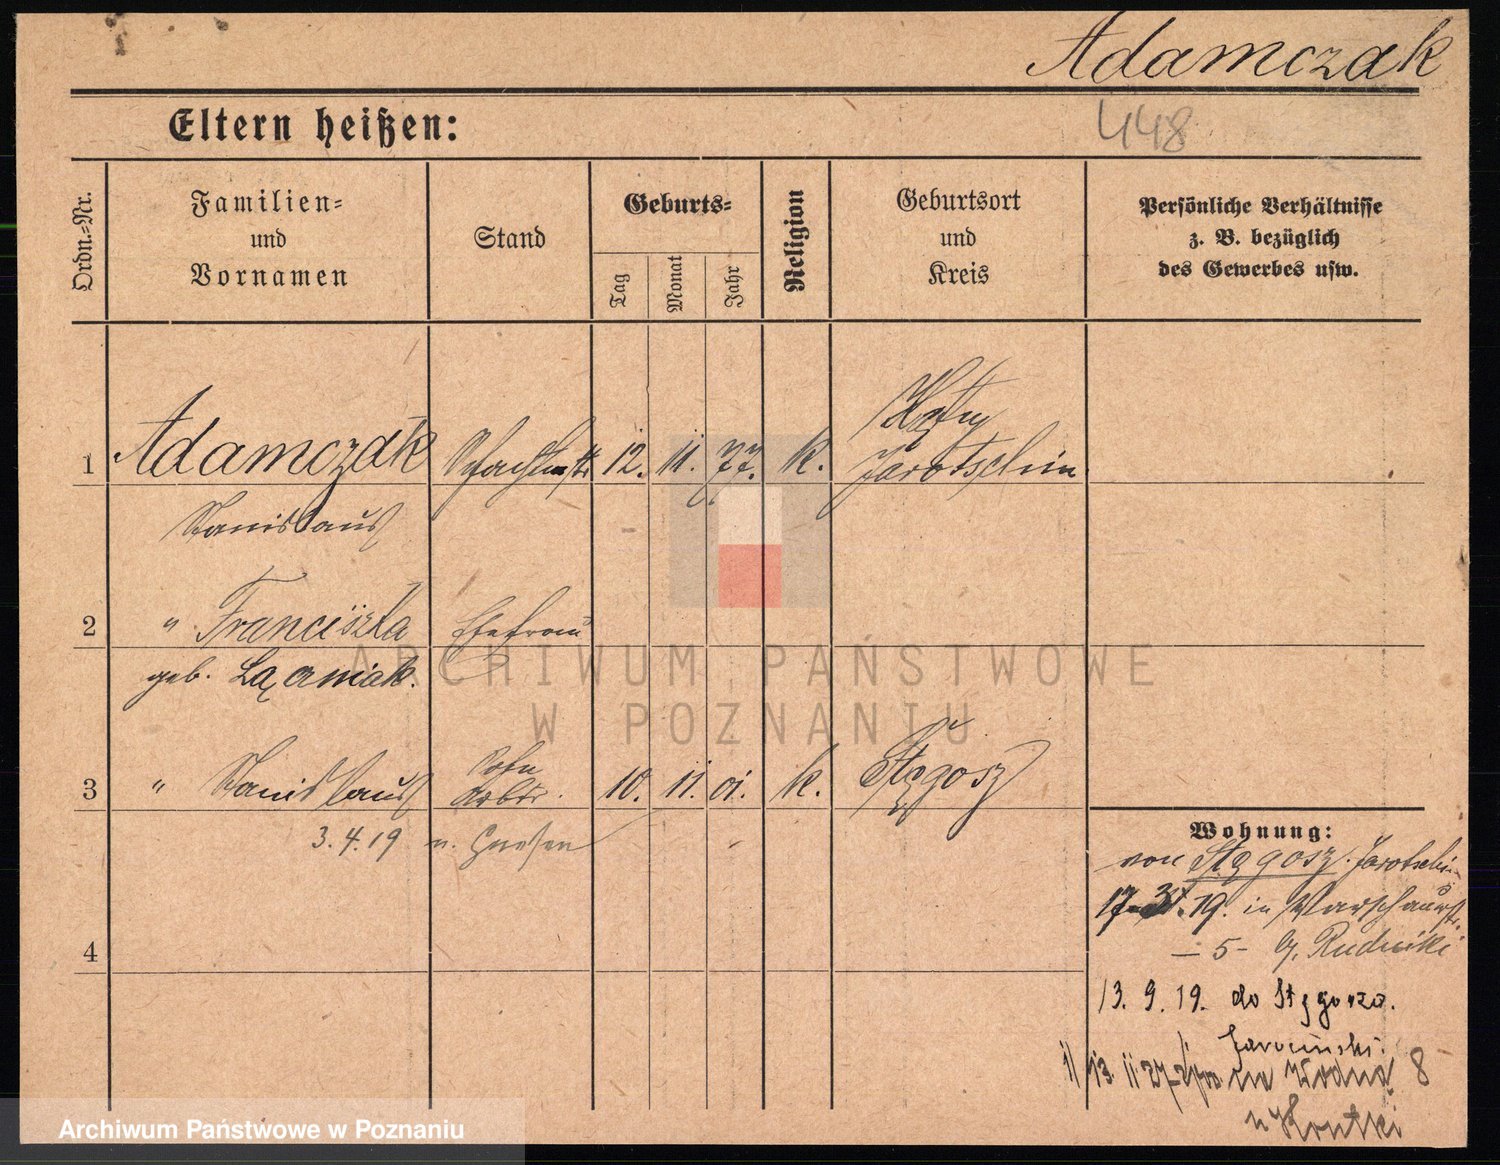 Adamczak
448
Eltern heißen:
Ordn.-Nr.
Familien-
und
Vornamen
Stand
Geburts-
Tag
Monat
Jahr
Religion
Geburtsort
und
Kreis
Persönliche Verhältnisse
z. B. bezüglich
des Gewerbes usw.
1 Adamczak 12. 11. 77. k.
Jarotschin
Stanislaus
2 " Franciszka Ehefrau
geb.
3 " Stanislaus 10. 11. 01. k. Stęgosz
3.4.19 n. Gnesen
4
Wohnung:
von Stęgosz. Jarotschin
19. in Warschauerstr.
– 5 – Rudnicki
13. 9. 19. do Stęgosza.
Jarociński.
na Wodną 8
ARCHIWUM PAŃSTWOWE
W POZNANIU
Archiwum Państwowe w Poznaniu